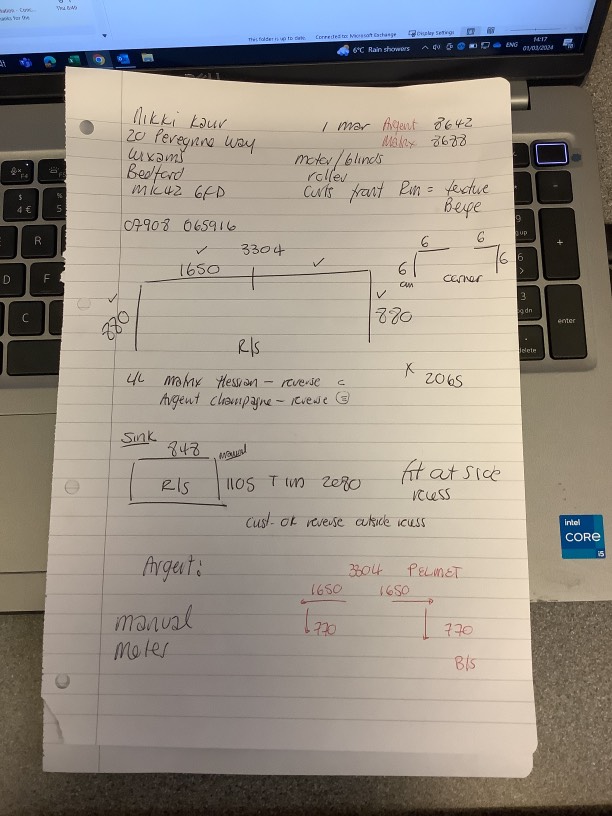 Thu 6:40
This folder is up to date. Connected to: Microsoft Exchange Display Settings
6°C Rain showers ENG 14:17 01/03/2024
DELL
Nikki Kaur 1 mar Argent 8642
20 Peregrine Way Matrix 8688
Wixams motor/blinds
Bedford roller
MK42 6FD Curts front Rm = textue
Beige
07908 065916
3304
1650
6 6
6 6
cm corner
880
880
R/s
x 2065
u/c Matrix Hession - reverse c
Argent champagne - reverse
Sink
848 manual
R/s 1105 T 1m 2080 fit at side
recess
Cust - ok reverse outside recess
Argent: 3304 PELMET
1650 1650
manual 770 770
Motor
B/s
R
D F
C
$
4 €
5
9
6
3
enter
delete
intel
CORE
i5